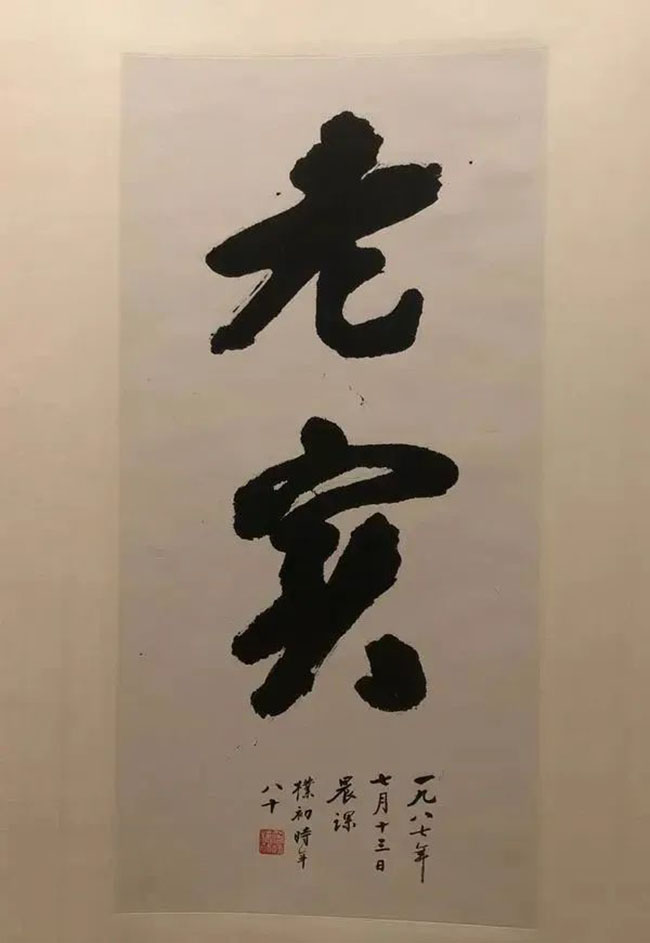 老实
一九八七年
七月十三日
晨课
樸初時年
八十